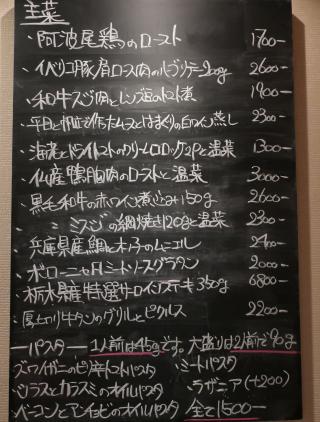 主菜
・阿波尾鶏のロースト 1700-
・イベリコ豚肩ロース肉の 200g 2600-
・和牛スジ肉とレンズ豆のトマト煮 1900-
・とはまぐりの白ワイン蒸し 2300-
・海老とドライトマトのクリームコロッケ2Pと温菜 1300-
・仏産鴨胸肉のローストと温菜 3000-
・黒毛和牛の赤ワイン煮込み150g 2600-
・〃 ミスジの網焼き120gと温菜 2300-
・兵庫県産鯛と のムニエル 2400-
・ボローニャ風ミートソースグラタン 2000-
・栃木県産特選サーロインステーキ350g 6800-
・厚切り牛タンのグリルとピクルス 2200-
―パスタ― 1人前は45gです。大盛りは2人前で90g
・ズワイガニのピリ辛トマトパスタ ・ミートパスタ
・シラスとカラスミのオイルパスタ ・ラザニア(+200)
・ベーコンとアンチョビのオイルパスタ 全て1500-